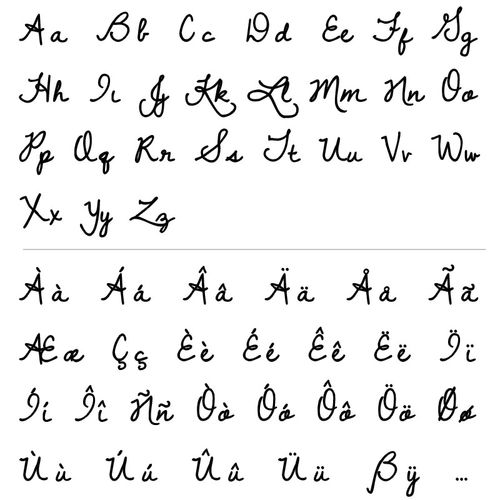 Aa Bb Cc Dd Ee Ff Gg
Hh Iı Jj Kk Ll Mm Nn Oo
Pp Qq Rr Ss Tt Uu Vv Ww
Xx Yy Zz
Àà Áá Ââ Ää Åå Ãã
Ææ Çç Èè Éé Êê Ëë Ïï
Íí Îî Ññ Òò Óó Ôô Öö Øø
Ùù Úú Ûû Üü ß ÿ ...